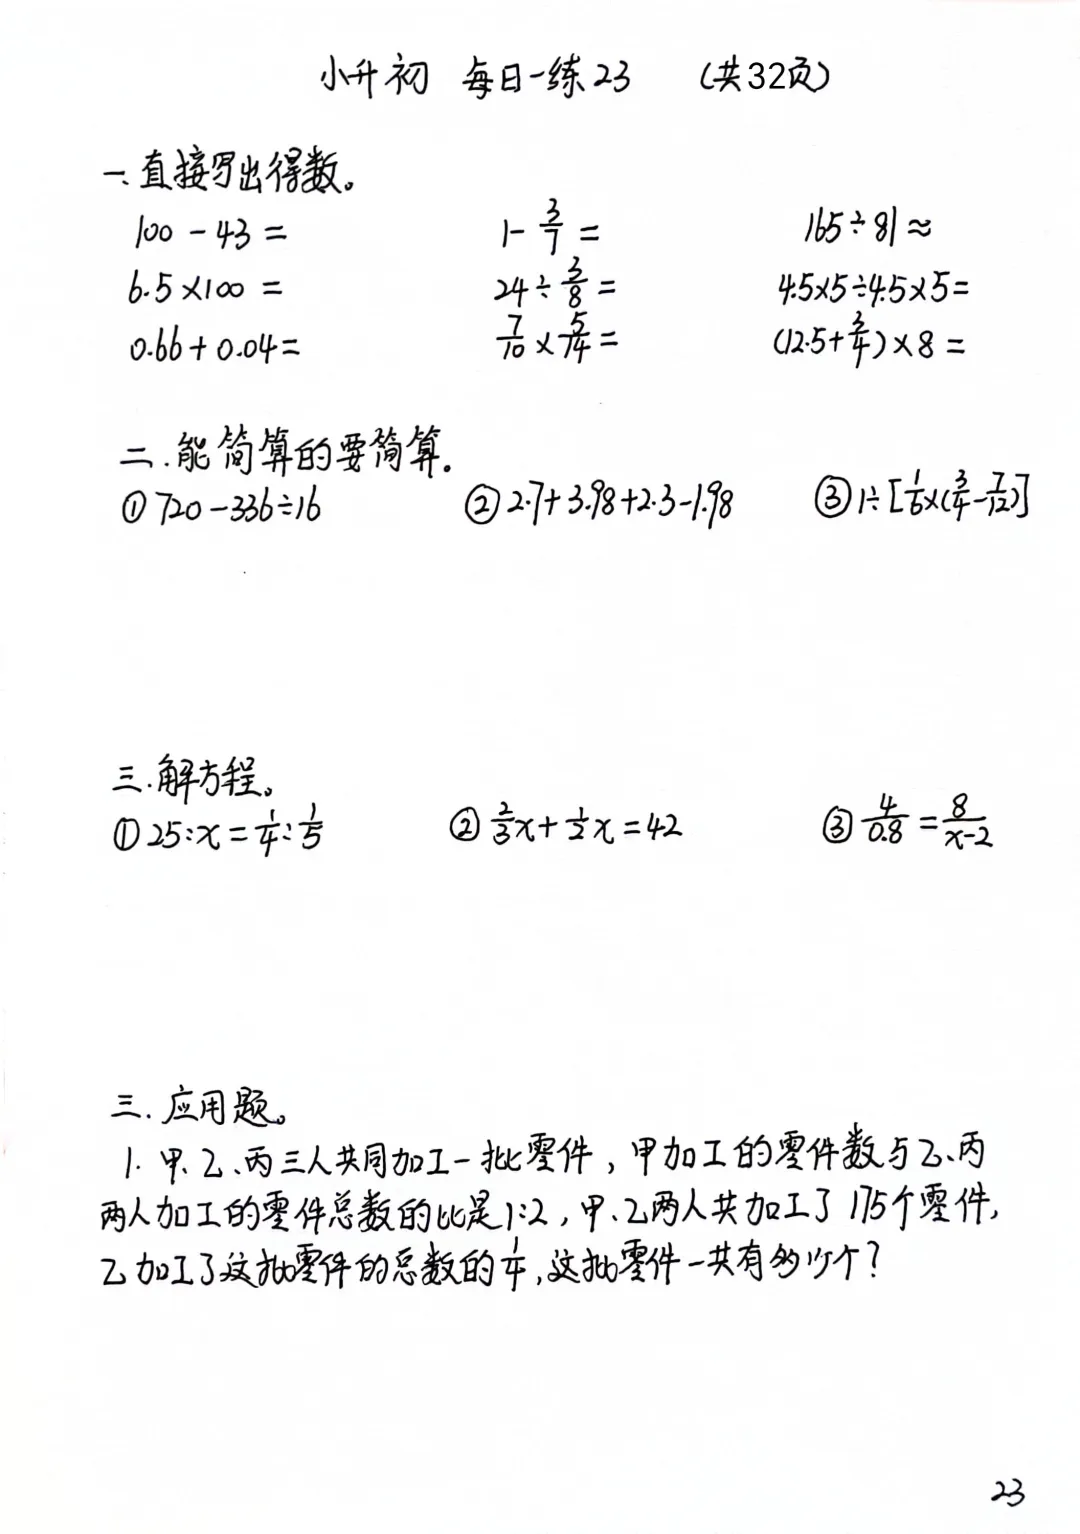 小升初 每日一练23 （共32页）
一、直接写出得数。
100 - 43 = 1 - 3/7 = 165÷81≈
6.5×100 = 24÷3/8 = 4.5×5÷4.5×5=
0.66+0.04= 7/10×5/14= (12.5+3/4)×8=
二.能简算的要简算。
①720-336÷16 ②2.7+3.98+2.3-1.98 ③1÷[1/6×(3/4-7/12)]
三.解方程。
①25:x=1/4:1/5 ②2/3x+1/2x=42 ③4/0.8=8/x-2
三.应用题。
1.甲、乙、丙三人共同加工一批零件，甲加工的零件数与乙、丙
两人加工的零件总数的比是1:2，甲、乙两人共加工了175个零件，
乙加工了这批零件的总数的1/4，这批零件一共有多少个？
23